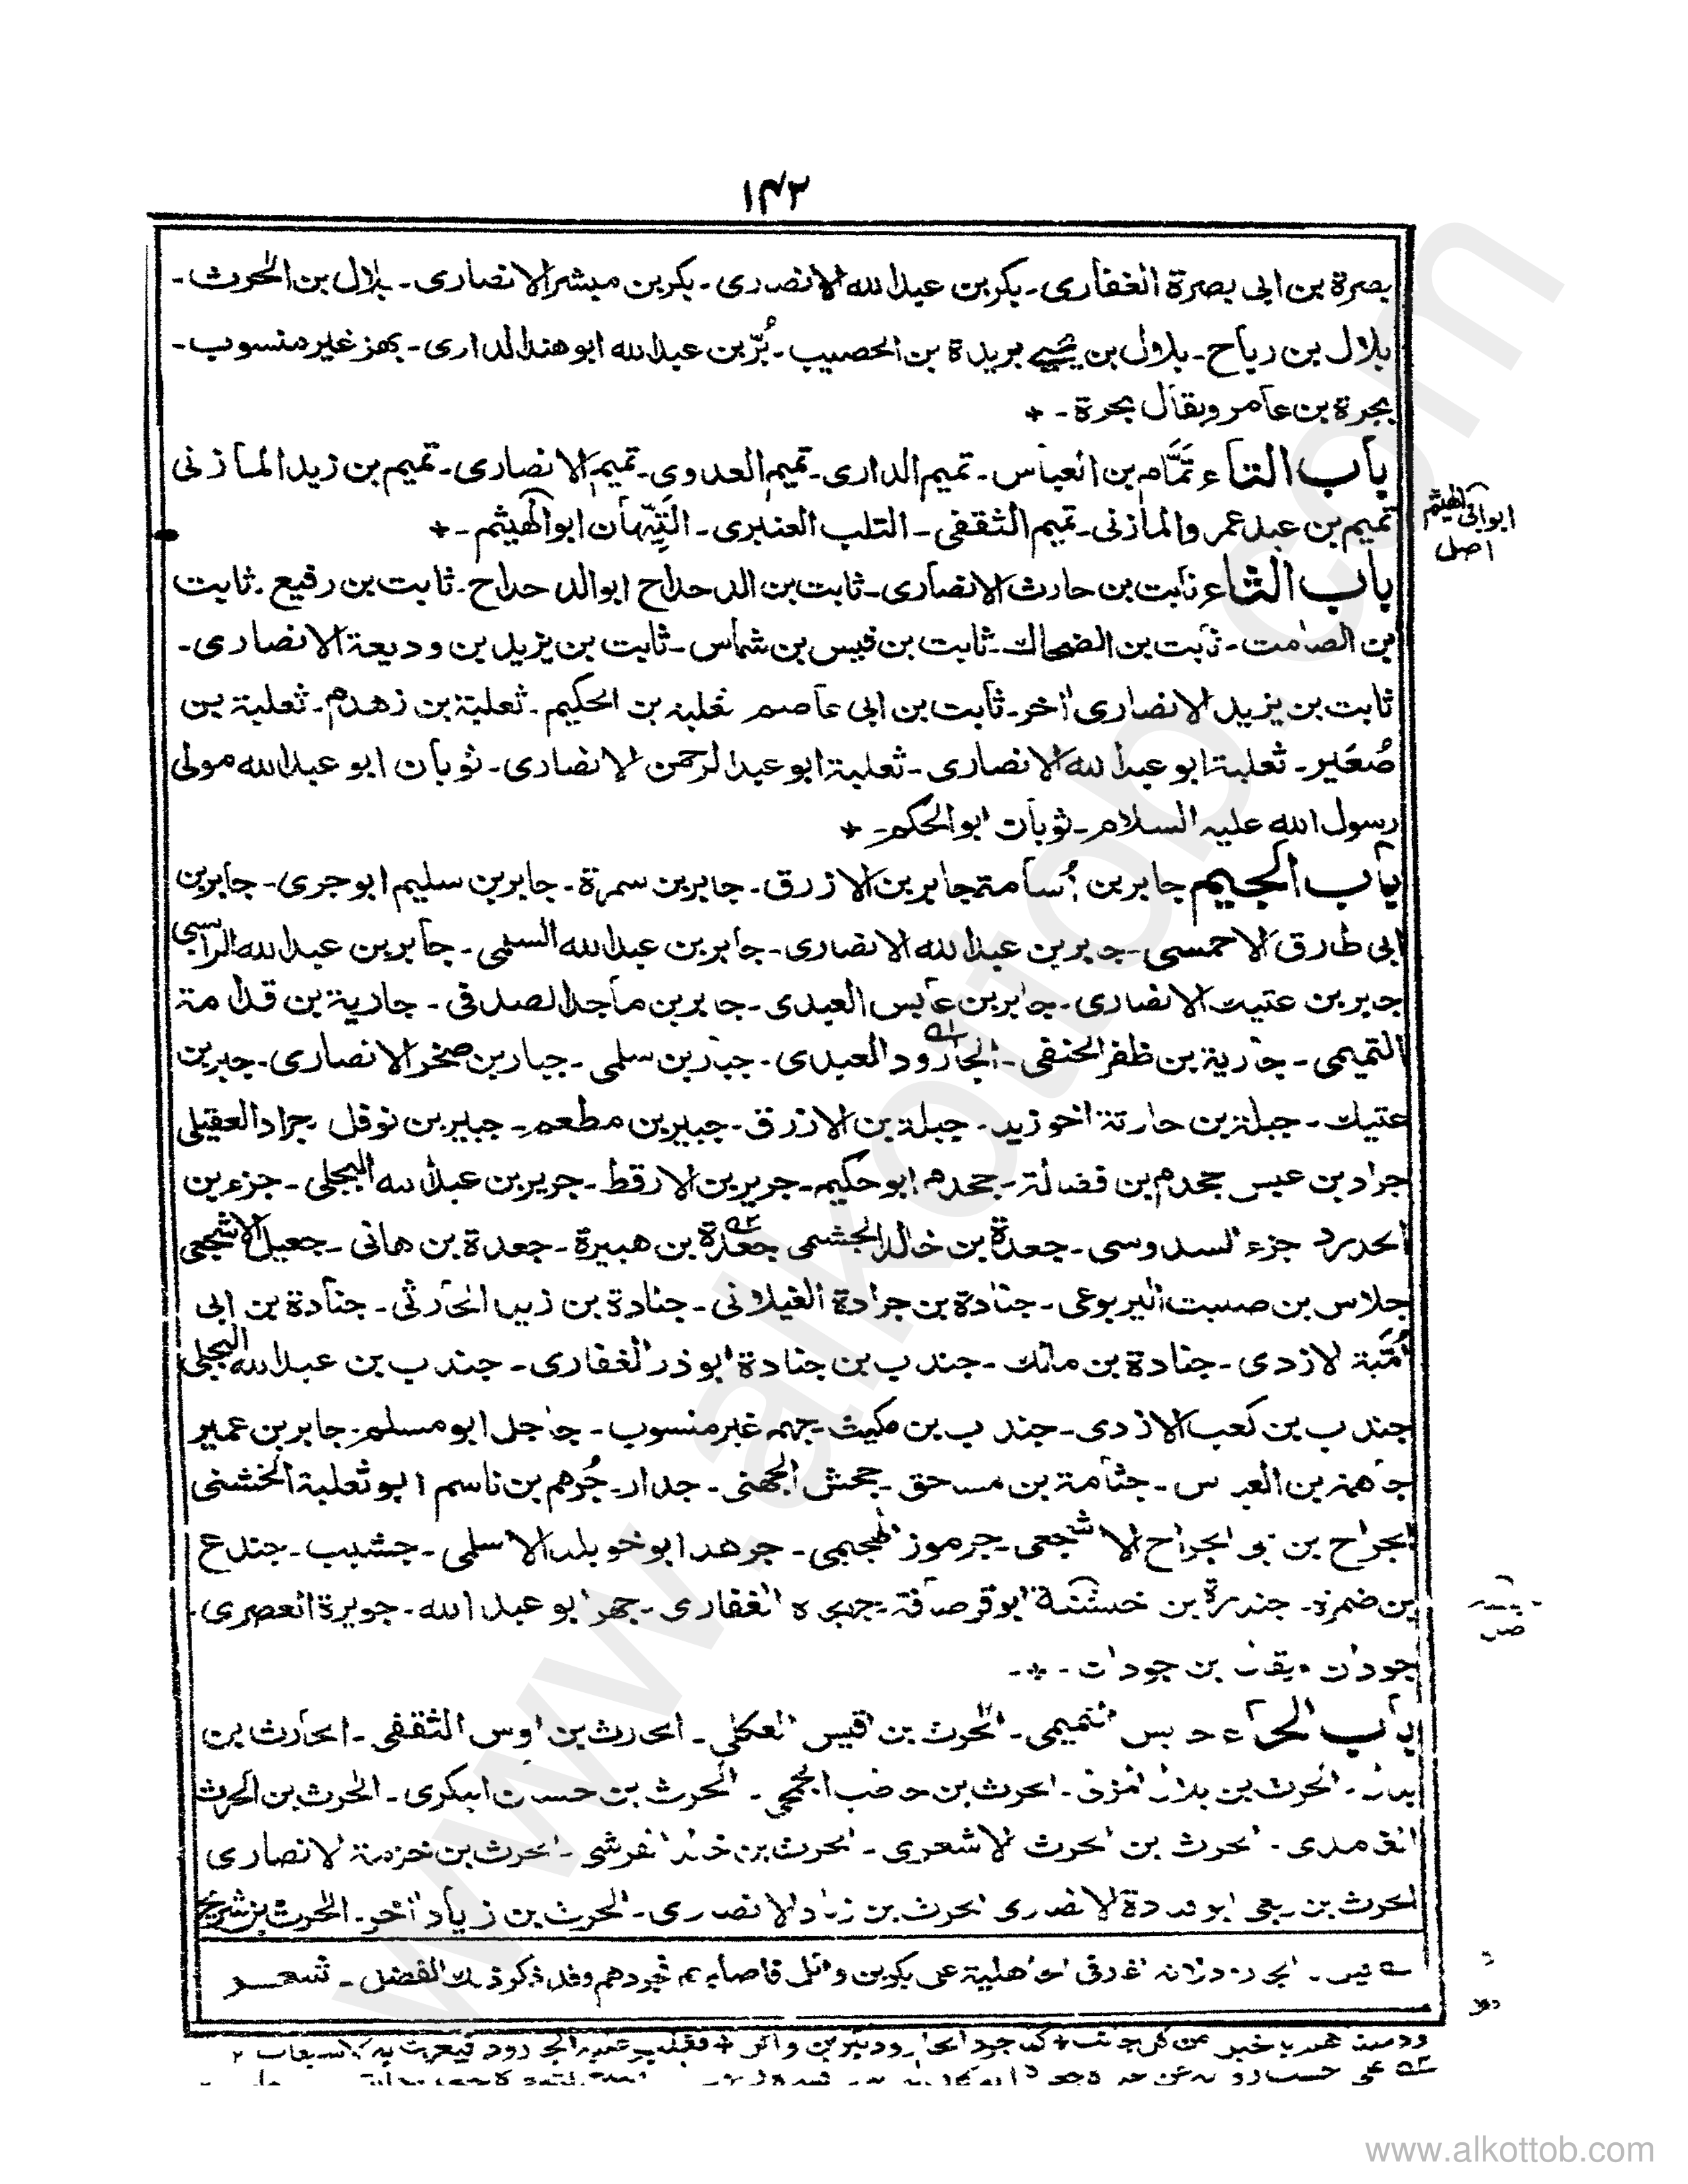 ١٤٢
بصرة بن ابى بصرة الغفارى۔ بكر بن عبد الله الانصارى۔ بكر بن مبشر الانصارى۔ بلال بن الحرث۔
بلال بن رباح۔ بلال بن يحيى بريدة بن الحصيب۔ بُرّ بن عبد الله ابو هند الدارى۔ بهز غير منسوب۔
بجرة بن عامر ويقال بحرة۔ *
باب التاء تَمَّام بن العباس۔ تميم الدارى۔ تميم العدوى۔ تميم الانصارى۔ تميم بن زيد المازنى
تميم بن عبد عمر والمازنى۔ تميم الثقفى۔ التلب العنبرى۔ التَّيِّهان ابو الهيثم۔ *
ابو ابى الهيثم
اصل
باب الثاء ثابت بن حارث الانصارى۔ ثابت بن الدحداح ابو الدحداح۔ ثابت بن رفيع۔ ثابت
بن الصامت۔ ثابت بن الضحاك۔ ثابت بن قيس بن شماس۔ ثابت بن يزيد بن وديعة الانصارى۔
ثابت بن يزيد الانصارى اخر۔ ثابت بن ابى عاصم ثعلبة بن الحكيم۔ ثعلبة بن زهدم۔ ثعلبة بن
صُعَير۔ ثعلبة ابو عبد الله الانصارى۔ ثعلبة ابو عبد الرحمن الانصارى۔ ثوبان ابو عبد الله مولى
رسول الله عليه السلام۔ ثوبان ابو الحكم۔ *
باب الجيم جابر بن اُسامة جابر بن الازرق۔ جابر بن سمرة۔ جابر بن سليم ابو جرى۔ جابر بن
ابى طارق الاحمسى۔ جابر بن عبد الله الانصارى۔ جابر بن عبد الله السلمى۔ جابر بن عبد الله الراسبى
جابر بن عتيك الانصارى۔ جابر بن عابس العبدى۔ جابر بن ماجد الصدفى۔ جارية بن قدامة
التميمى۔ جارية بن ظفر الحنفى۔ الجارود العبدى۔ جبار بن سلمى۔ جبار بن صخر الانصارى۔ جبر بن
عتيك۔ جبلة بن حارثة اخو زيد۔ جبلة بن الازرق۔ جبير بن مطعم۔ جبير بن نوفل۔ جراد العقيلى
جراد بن عبس جحدم بن فضالة۔ جحدم ابو حكيم۔ جرير بن الارقط۔ جرير بن عبد الله البجلى۔ جزء بن
الحدرد جزء السدوسى۔ جعدة بن خالد الجشمى جعدة بن هبيرة۔ جعدة بن هانى۔ جعيل الاشجعى
جلاس بن صليت اليربوعى۔ جنادة بن جرادة الغيلانى۔ جنادة بن زيد الحارثى۔ جنادة بن ابى
اُمَيَّة لازدى۔ جنادة بن مالك۔ جندب بن جنادة ابو ذر الغفارى۔ جندب بن عبد الله البجلى
جندب بن كعب الازدى۔ جندب بن مكيث۔ جهم غير منسوب۔ جاجل ابو مسلم۔ جابر بن عمير
جاهمة بن العباس۔ جثامة بن مساحق۔ جحش الجهنى۔ جدار۔ جُرهم بن ناسم ابو ثعلبة الخشنى
الجراح بن ابى الجراح الاشجعى۔ جرموز الهجيمى۔ جرهد ابو خويلد الاسلمى۔ جشيب۔ جندع
بن ضمرة۔ جندرة بن خيشنة ابو قرصافة۔ جهجاه الغفارى۔ جهر ابو عبد الله۔ جويرة العصرى۔
جودان ويقال بن جودان۔ *۔
باب الحاء حابس التميمى۔ الحرث بن اقيس العكلى۔ الحارث بن اوس الثقفى۔ الحارث بن
بدل۔ الحرث بن بلال المزنى۔ الحرث بن حاطب الجمحى۔ الحرث بن حسان البكرى۔ الحرث بن الحرث
الغامدى۔ الحرث بن الحرث الاشعرى۔ الحرث بن خالد القرشى۔ الحرث بن خزمة لانصارى
الحرث بن ربعى ابو قتادة الانصارى الحرث بن زياد الانصارى۔ الحرث بن زياد اخر۔ الحرث بن شريح
وقد ذكر ذلك الفضل۔ شعر
www.alkottob.com